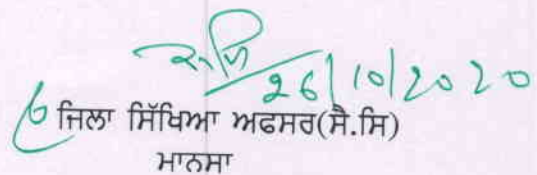 26/10/2020
ਜਿਲਾ ਸਿੱਖਿਆ ਅਫਸਰ(ਸੈ.ਸਿ)
ਮਾਨਸਾ